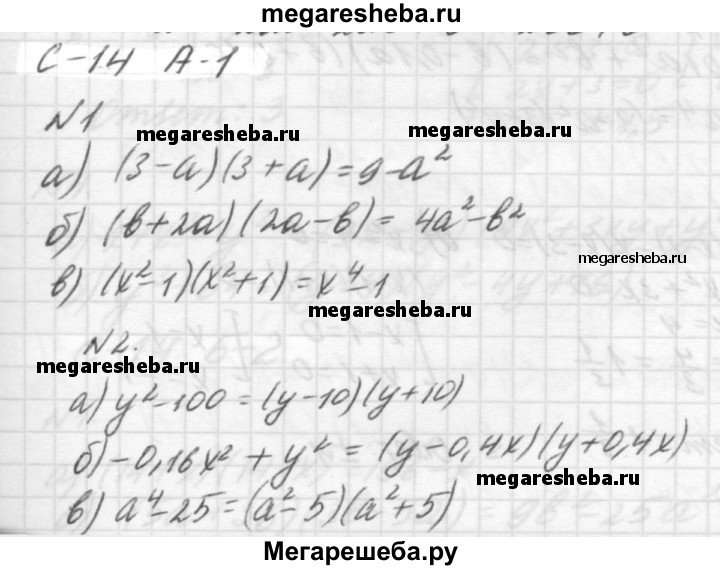 megaresheba.ru
С-14 А-1
N1
megaresheba.ru
megaresheba.ru
а) (3-a)(3+a)=9-a²
б) (b+2a)(2a-b)= 4a²-b²
megaresheba.ru
в) (x²-1)(x²+1)=x⁴-1
megaresheba.ru
N2.
megaresheba.ru
а) y²-100=(y-10)(y+10)
б) -0,16x²+y²=(y-0,4x)(y+0,4x)
megaresheba.ru
в) a⁴-25=(a²-5)(a²+5)
Мегарешеба.ру